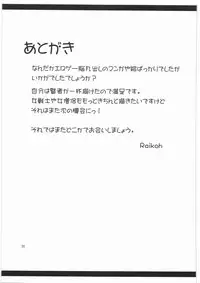 あとがき
なんだかエロゲー垂れ出しのマンガや絵ばっかりでしたが
いかがでしたでしょうか？
自分は賢者が一杯描けたので満足です。
女戦士や女僧侶ももっときちんと描きたいですけど
それはまた次の機会にっ！
それではまたどこかでお会いしましょう。
Raikoh